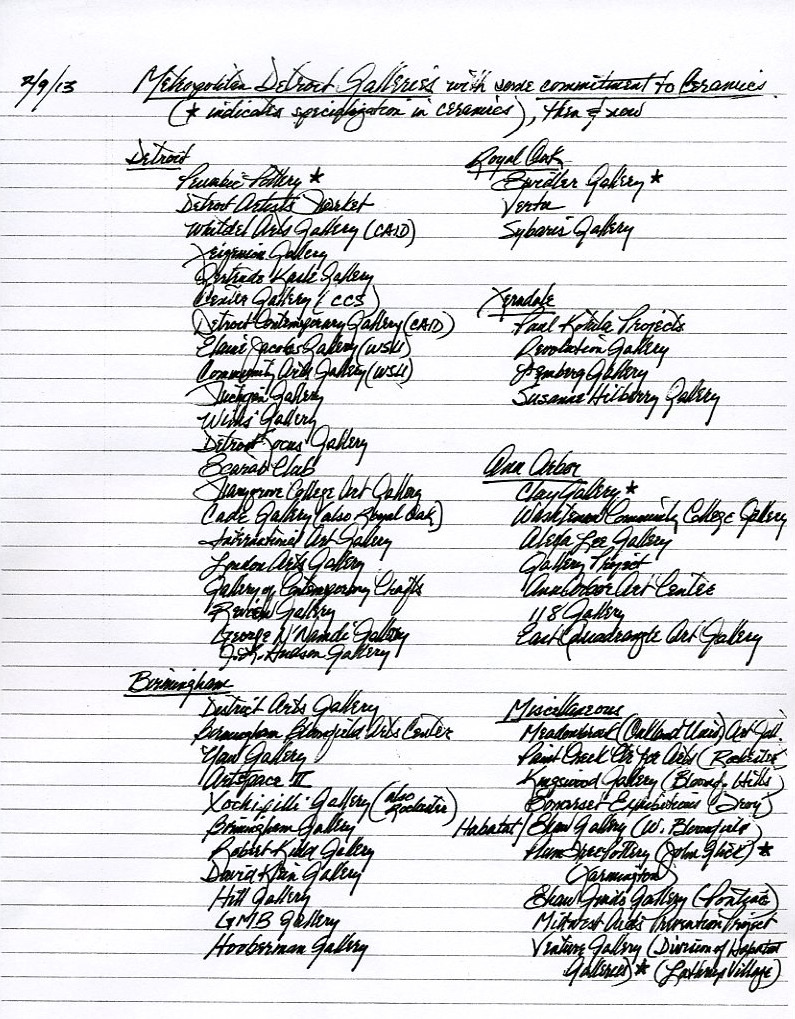 2/9/13
Metropolitan Detroit Galleries with some commitment to Ceramics
(* indicates specialization in ceramics), then & now
Detroit
Pewabic Pottery *
Detroit Artists Market
Whitdel Arts Gallery (CAID)
Feigenson Gallery
Gertrude Kasle Gallery
Center Gallery (CCS)
Detroit Contemporary Gallery (CAID)
Elaine Jacobs Gallery (WSU)
Community Arts Gallery (WSU)
Michigan Gallery
Willis Gallery
Detroit Focus Gallery
Scarab Club
Marygrove College Art Gallery
Cade Gallery (also Royal Oak)
International Art Gallery
London Arts Gallery
Gallery of Contemporary Crafts
Review Gallery
George N'Namdi Gallery
J.L. Hudson Gallery
Birmingham
District Arts Gallery
Birmingham Bloomfield Arts Center
Yaw Gallery
ArtSpace II
Xochipilli Gallery (also Rochester)
Birmingham Gallery
Robert Kidd Gallery
David Klein Gallery
Hill Gallery
GMB Gallery
Hooberman Gallery
Royal Oak
Swidler Gallery *
Vertu
Sybaris Gallery
Ferndale
Paul Kotula Projects
Revolution Gallery
Lemberg Gallery
Susanne Hilberry Gallery
Ann Arbor
Clay Gallery *
Washtenaw Community College Gallery
Alexa Lee Gallery
Gallery Project
Ann Arbor Art Center
118 Gallery
East Quadrangle Art Gallery
Miscellaneous
Meadowbrook (Oakland Univ) Art Gall.
Paint Creek Ctr for Arts (Rochester)
Kingswood Gallery (Bloomf. Hills)
Somerset Exhibitions (Troy)
Habatat/Shaw Gallery (W. Bloomfield)
Plum Tree Pottery (John Glick) *
(Farmington)
Shaw Guido Gallery (Pontiac)
Midwest Arts Provention Project
Venture Gallery (Division of Habatat
Galleries) * (Lathrup Village)